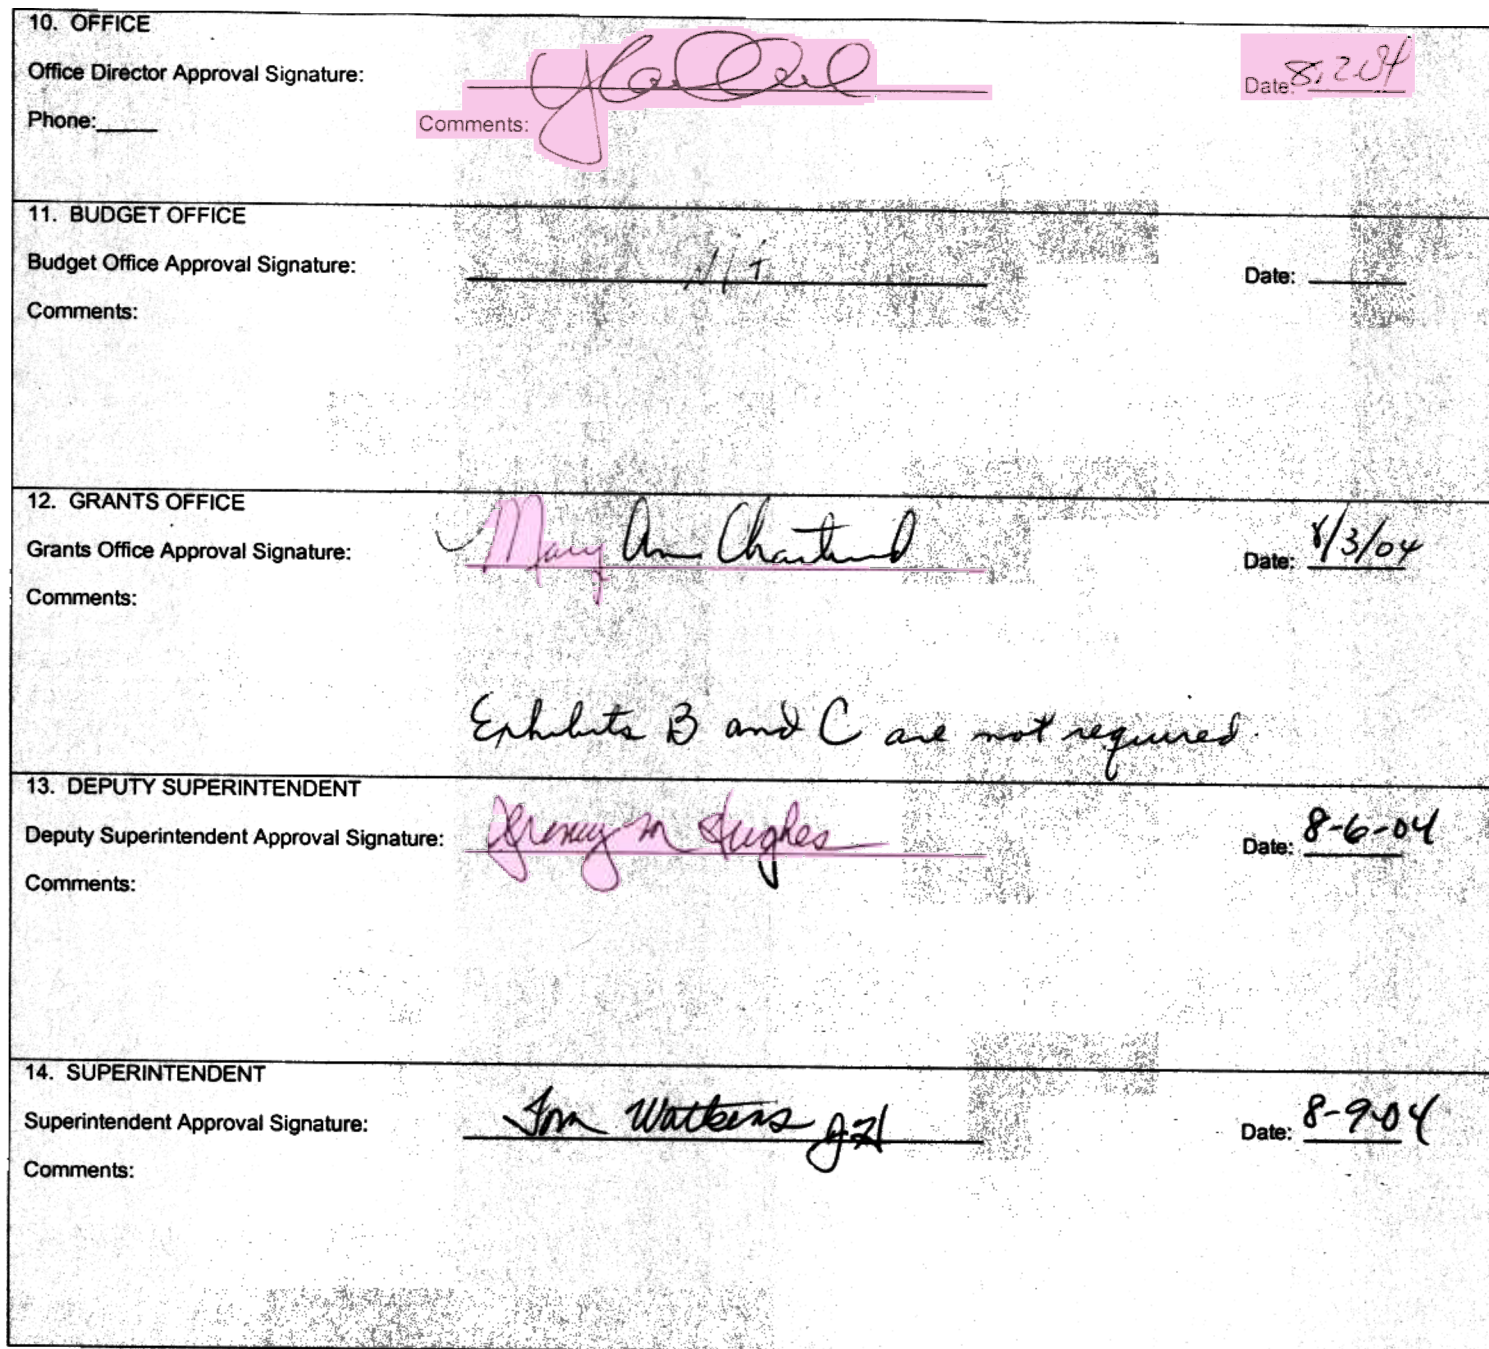 10. OFFICE
Office Director Approval Signature: Date: 8.2.04
Phone:_____ Comments:
11. BUDGET OFFICE
Budget Office Approval Signature: Date:
Comments:
12. GRANTS OFFICE
Grants Office Approval Signature: Mary Ann Chartrand Date: 8/3/04
Comments:
Exhibits B and C are not required.
13. DEPUTY SUPERINTENDENT
Deputy Superintendent Approval Signature: Jeremy M Hughes Date: 8-6-04
Comments:
14. SUPERINTENDENT
Superintendent Approval Signature: Tom Watkins JH Date: 8-9-04
Comments: